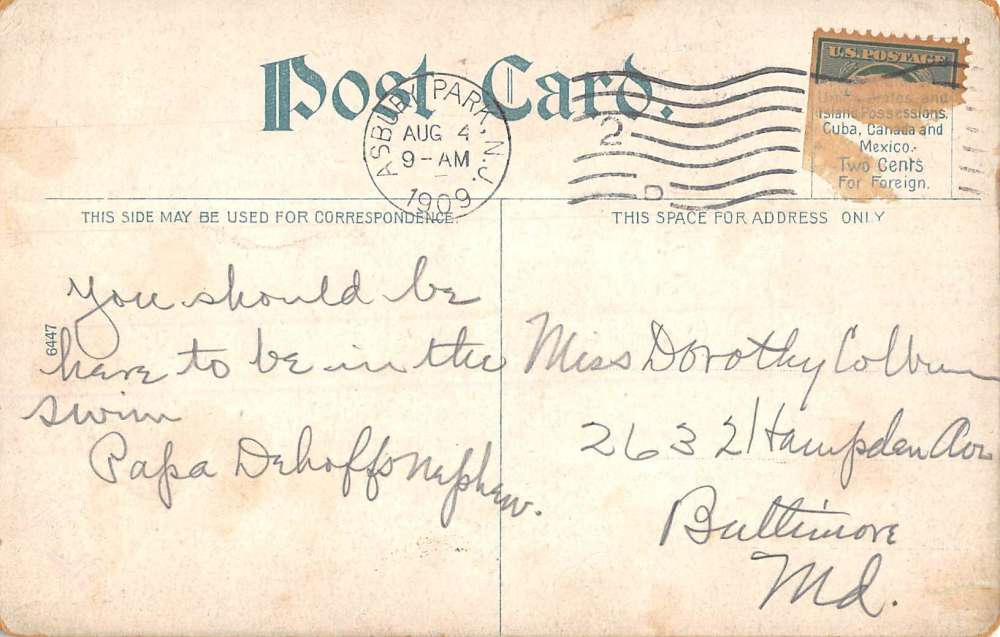 Post Card.
ASBURY PARK, N.J.
AUG 4
9-AM
1909
2
D
U.S. POSTAGE
Island Possessions,
Cuba, Canada and
Mexico.
Two Cents
For Foreign.
THIS SIDE MAY BE USED FOR CORRESPONDENCE.
THIS SPACE FOR ADDRESS ONLY
6447
You should be
here to be in the
swim
Papa Dehoffs nephew.
Miss Dorothy
Hampden Ave
Baltimore
Md.